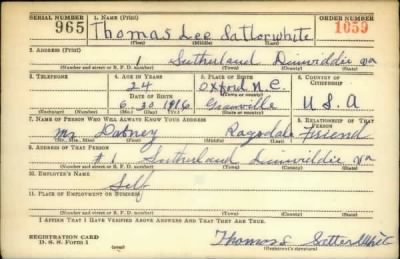 SERIAL NUMBER 1. NAME (Print) ORDER NUMBER
965 Thomas Lee Satterwhite 1059
(First) (Middle) (Last)
2. ADDRESS (Print)
1 Sutherland Dinwiddie Va
(Number and street or R. F. D. number) (Town) (County) (State)
3. TELEPHONE 4. AGE IN YEARS 5. PLACE OF BIRTH 6. COUNTRY OF CITIZENSHIP
24 Oxford N.C.
DATE OF BIRTH (Town or county)
6 30 1916 Granville U.S.A
(Exchange) (Number) (Mo.) (Day) (Yr.) (State or country)
7. NAME OF PERSON WHO WILL ALWAYS KNOW YOUR ADDRESS 8. RELATIONSHIP OF THAT PERSON
Mr Dabney Friend
(Mr., Mrs., Miss) (First) (Middle) (Last)
9. ADDRESS OF THAT PERSON
# 1 Sutherland Dinwiddie Va
(Number and street or R. F. D. number) (Town) (County) (State)
10. EMPLOYER'S NAME
Self
11. PLACE OF EMPLOYMENT OR BUSINESS
(Number and street or R. F. D. number) (Town) (County) (State)
I AFFIRM THAT I HAVE VERIFIED ABOVE ANSWERS AND THAT THEY ARE TRUE.
REGISTRATION CARD
D. S. S. Form 1 Thomas Satterwhite
(Registrant's signature)